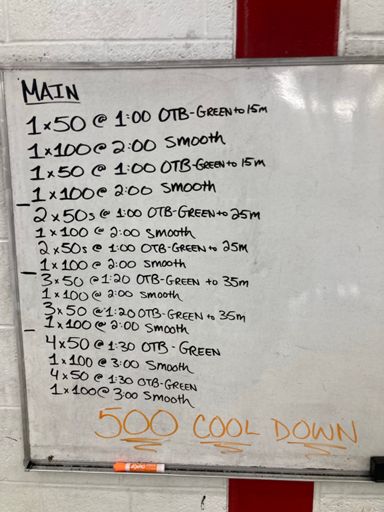 MAIN
1x50 @ 1:00 OTB-GREEN to 15m
1x100 @ 2:00 Smooth
1x50 @ 1:00 OTB-GREEN to 15m
1x100 @ 2:00 Smooth
2x50s @ 1:00 OTB-GREEN to 25m
1x100 @ 2:00 Smooth
2x50s @ 1:00 OTB-GREEN to 25m
1x100 @ 2:00 Smooth
3x50 @ 1:20 OTB-GREEN to 35m
1x100 @ 2:00 Smooth
3x50 @ 1:20 OTB-GREEN to 35m
1x100 @ 2:00 Smooth
4x50 @ 1:30 OTB-GREEN
1x100 @ 3:00 Smooth
4x50 @ 1:30 OTB-GREEN
1x100 @ 3:00 Smooth
500 COOL DOWN
EXPO